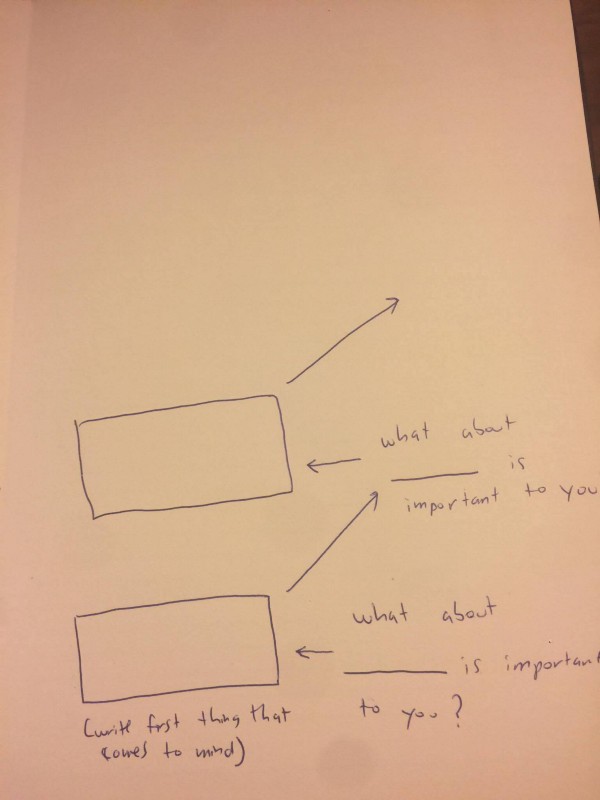 what about
____ is
important to you
what about
____ is important
to you?
(write first thing that
comes to mind)